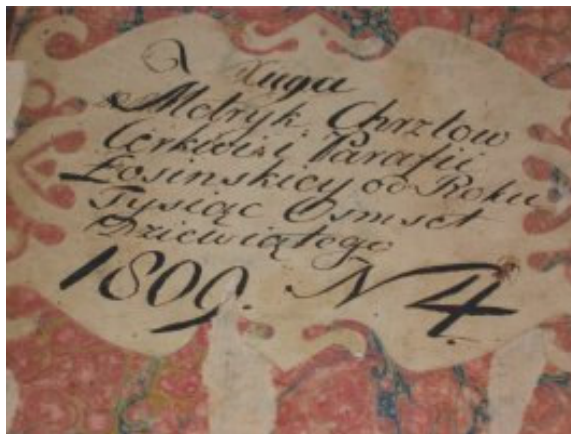 Xuga
Metryk Chrztow
Cerkwi i Parafii
Łosinskiey od Roku
Tysiąc Osmset
Dziewiątego
1809. N 4